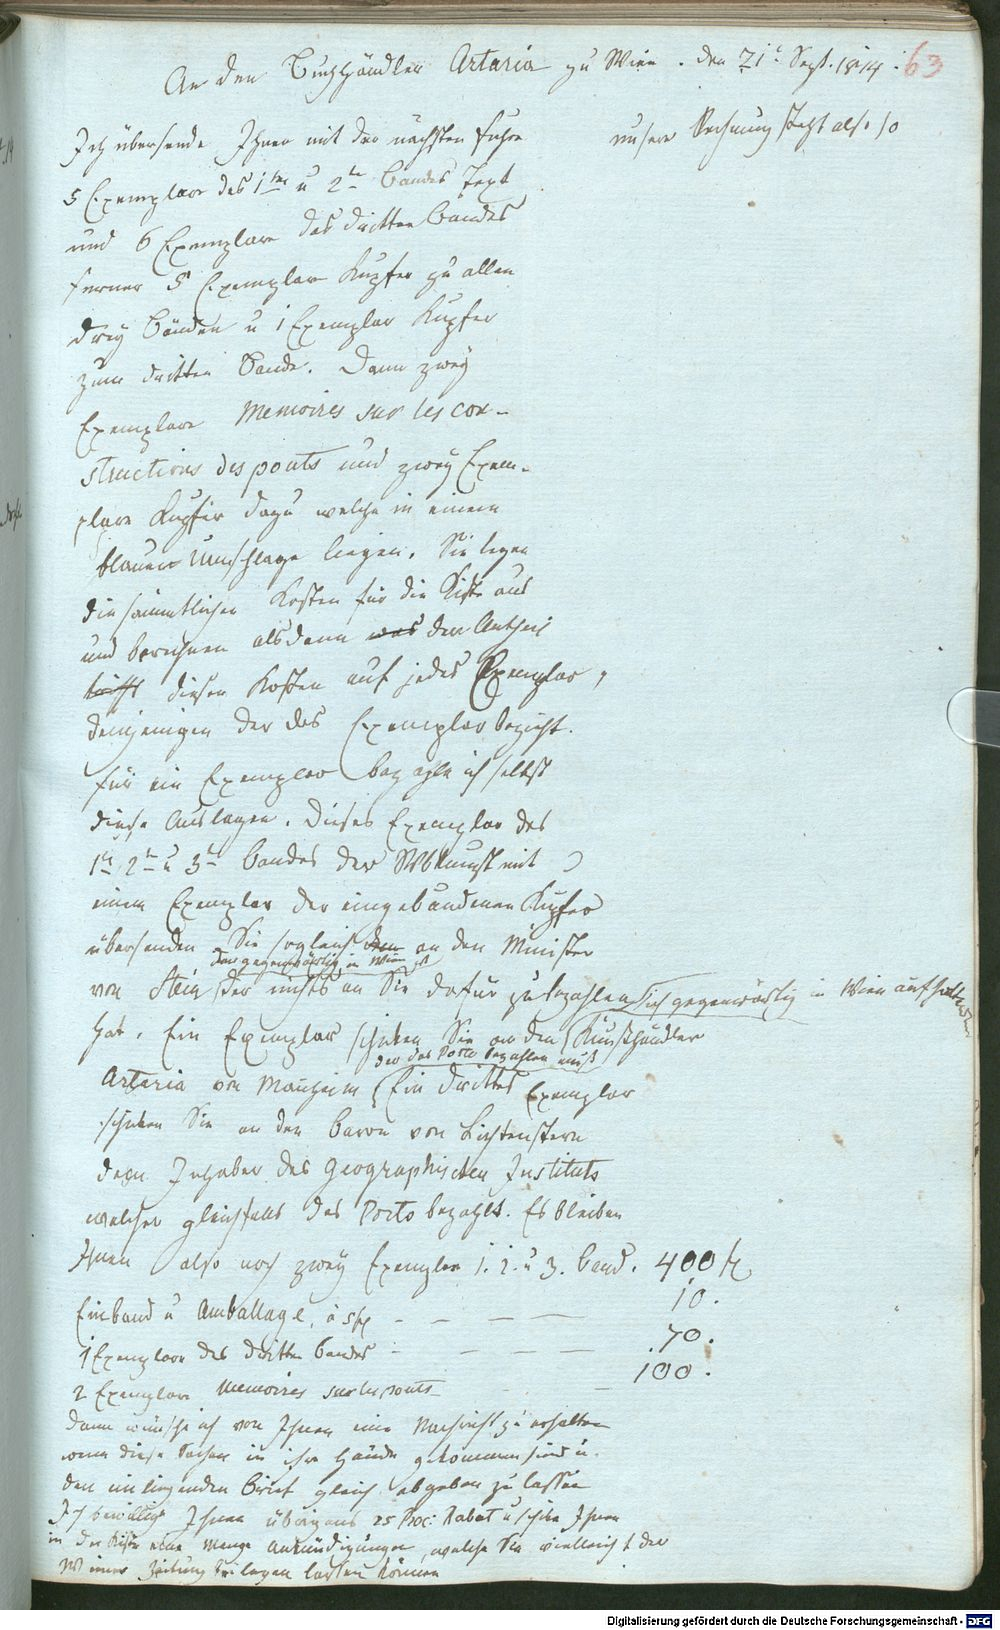 An den Buchhändler Artaria zu Wien. den 21t Sept. 1814. 63
Ich übersende Ihnen mit der nächsten Fuhre
unsere Rechnung steht also so
5 Exemplare des 1ten u 2ten Bandes Text
und 6 Exemplare des dritten Bandes
ferner 5 Exemplar Kupfer zu allen
drey Bänden u 1 Exemplar Kupfer
zum dritten Bande. Dann zwey
Exemplare Memoires sur les con-
structions des ponts und zwey Exem-
plare Kupfer dazu welche in einem
blauen Umschlage liegen. Sie legen
die sämmtlichen Kosten für die Kiste aus
und berechnen alsdann was den Antheil
trifft dieser Kosten auf jedes Exemplar,
demjenigen der das Exemplar bezieht.
für ein Exemplar bezahle ich selbst
diese Auslagen. Dieses Exemplar des
1ten 2ten u 3ten Bandes der Wbkunst mit
einem Exemplar der eingebundenen Kupfer
übersenden Sie sogleich an den Minister
der gegenwärtig in Wien ist
von Stein der nichts an Sie dafür zu bezahlen sich gegenwärtig in Wien aufhält
hat. Ein Exemplar schicken Sie an den Kunsthändler
der das Porto bezahlen muß
Artaria von Manheim Ein drittes Exemplar
schicken Sie an den Baron von Lichtenstern
dem Inhaber des Geographischen Instituts
welcher gleichfalls das Porto bezahlt. Es bleiben
Ihnen also noch zwey Exemplar 1. 2. u 3. Band. 400 fl
Einband u Amballage, à 5 fl - - - - 10.
1 Exemplar des dritten Bandes - - - - 70.
2 Exemplare Memoires sur les ponts - - 100.
Dann wünsche ich von Ihnen eine Nachricht zu erhalten
wenn diese Sachen in ihre Hände gekommen sind u.
den einliegenden Brief gleich abgeben zu lassen
Ich bewillige Ihnen übrigens 25 Proc: Rabat u schicke Ihnen
in der Kiste eine Menge Ankündigungen, welche Sie vielleicht der
Wiener Zeitung beilegen lassen können
Digitalisierung gefördert durch die Deutsche Forschungsgemeinschaft - DFG